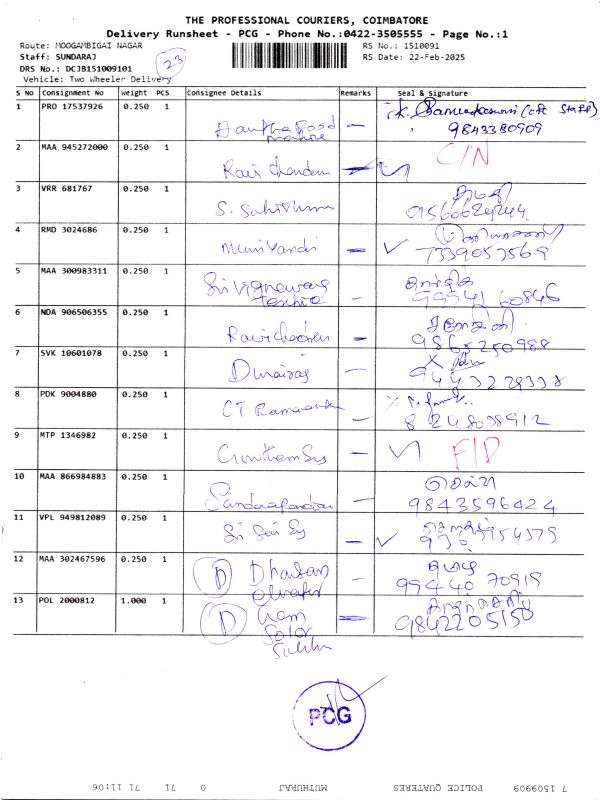 THE PROFESSIONAL COURIERS, COIMBATORE
Delivery Runsheet - PCG - Phone No.:0422-3505555 - Page No.:1
Route: MOOGAMBIGAI NAGAR
RS No.: 1510091
Staff: SUNDARAJ
RS Date: 22-Feb-2025
DRS No.: DCJB151009101
23
Vehicle: Two Wheeler Delivery
S NO Consignment No Weight PCS Consignee Details Remarks Seal & Signature
1 PRO 17537926 0.250 1
Food
9843380909
2 MAA 945272000 0.250 1
C/N
Ravi
3 VRR 681767 0.250 1
S.
4 RMD 3024686 0.250 1
Muniyandi
7339057569
5 MAA 300983311 0.250 1
Sri Vigneswara
99941 60846
6 NDA 906506355 0.250 1
Ravichandran
9865250988
7 SVK 10601078 0.250 1
Durairaj
8 PDK 9004880 0.250 1
CT
8248038912
9 MTP 1346982 0.250 1
F/D
10 MAA 866984883 0.250 1
செல்வி
9843596424
11 VPL 949812089 0.250 1
Sri Sai
12 MAA 302467596 0.250 1
D
99440 70919
13 POL 2000812 1.000 1
D
Solar
9842205150
PCG
7 1509909 POLICE QUATERES MUTHURAJ 0 71 71 11:06